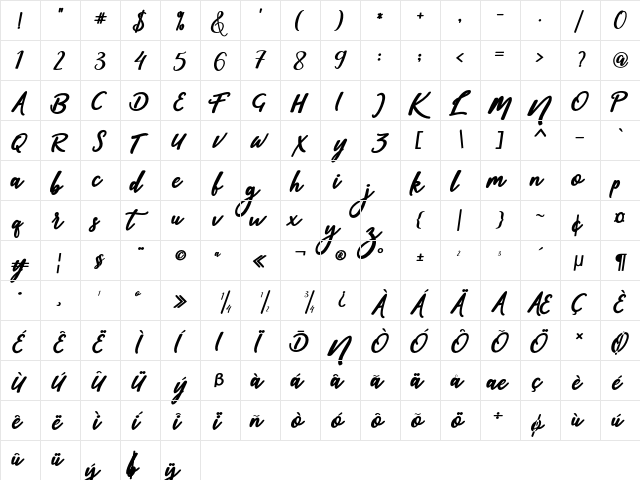 ! " # $ % & ' ( ) * + , – . / 0
1 2 3 4 5 6 7 8 9 : ; < = > ? @
A B C D E F G H I J K L M N O P
Q R S T U V W X Y Z [ \ ] ^ _ `
a b c d e f g h i j k l m n o p
q r s t u v w x y z { | } ~ ¢ ¤
¥ ¦ § ¨ © ª « ¬ ® ° ± ² ³ ´ µ ¶
· ¸ ¹ º » ¼ ½ ¾ ¿ À Á Ä A Æ Ç È
É Ê Ë Ì Í I Ï Ñ Ò Ó Ô Õ Ö × Ø
Ù Ú Û Ü ý β à á â ã ä å æ ç è é
ê ë ì í î ï ñ ò ó ô õ ö ÷ ø ù ú
û ü ý þ ÿ